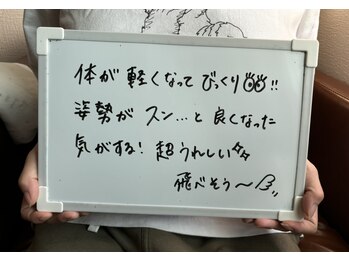 体が 軽くなって びっくり👀!!
姿勢が スン…と 良くなった
気がする! 超うれしい✨
飛べそう〜